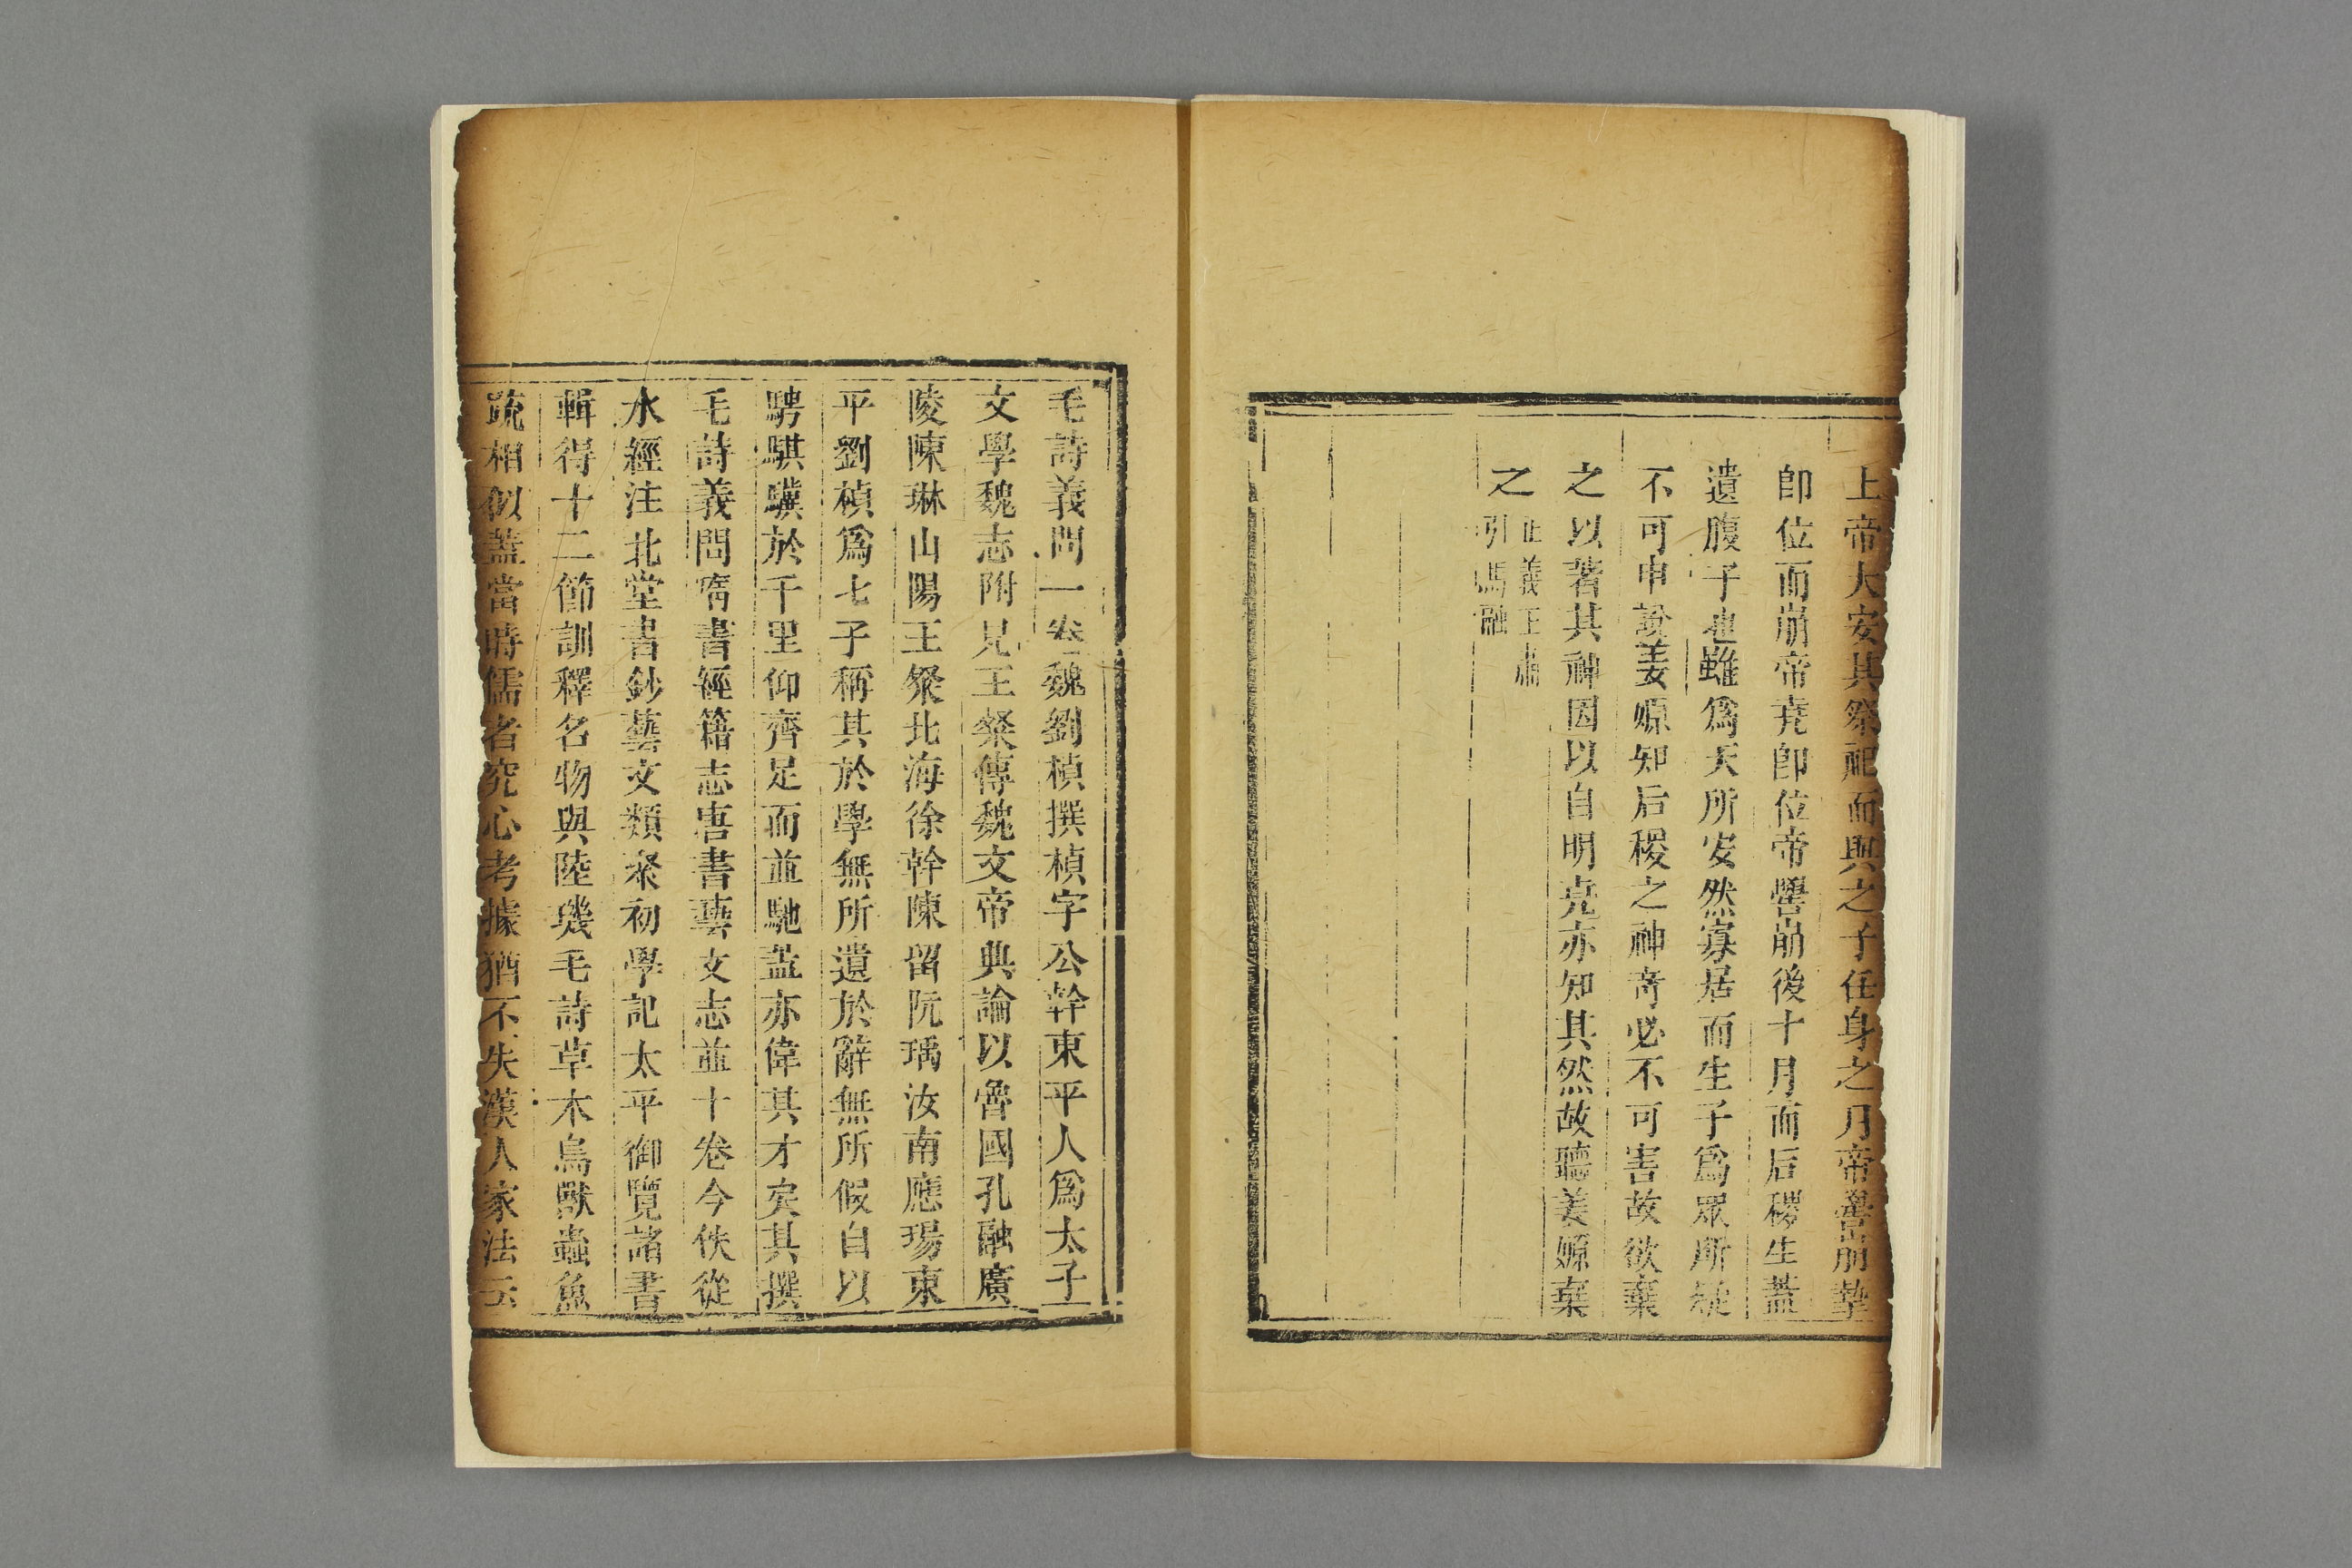 上帝大安其祭祀而與之子任身之月帝嚳崩摯
卽位而崩帝堯卽位帝嚳崩後十月而后稷生蓋
遺腹子也雖爲天所安然寡居而生子爲眾所疑
不可申說姜嫄知后稷之神奇必不可害故欲棄
之以著其神因以自明堯亦知其然故聽姜嫄棄
之正義王肅
引馬融
毛詩義問一卷魏劉楨撰楨字公幹東平人爲太子
文學魏志附見王粲傳魏文帝典論以魯國孔融廣
陵陳琳山陽王粲北海徐幹陳留阮瑀汝南應瑒東
平劉楨爲七子稱其於學無所遺於辭無所假自以
騁騏驥於千里仰齊足而並馳蓋亦偉其才矣其撰
毛詩義問隋書經籍志唐書藝文志並十卷今佚從
水經注北堂書鈔藝文類聚初學記太平御覽諸書
輯得十二節訓釋名物與陸璣毛詩草木鳥獸蟲魚
疏相似蓋當時儒者究心考據猶不失漢人家法云